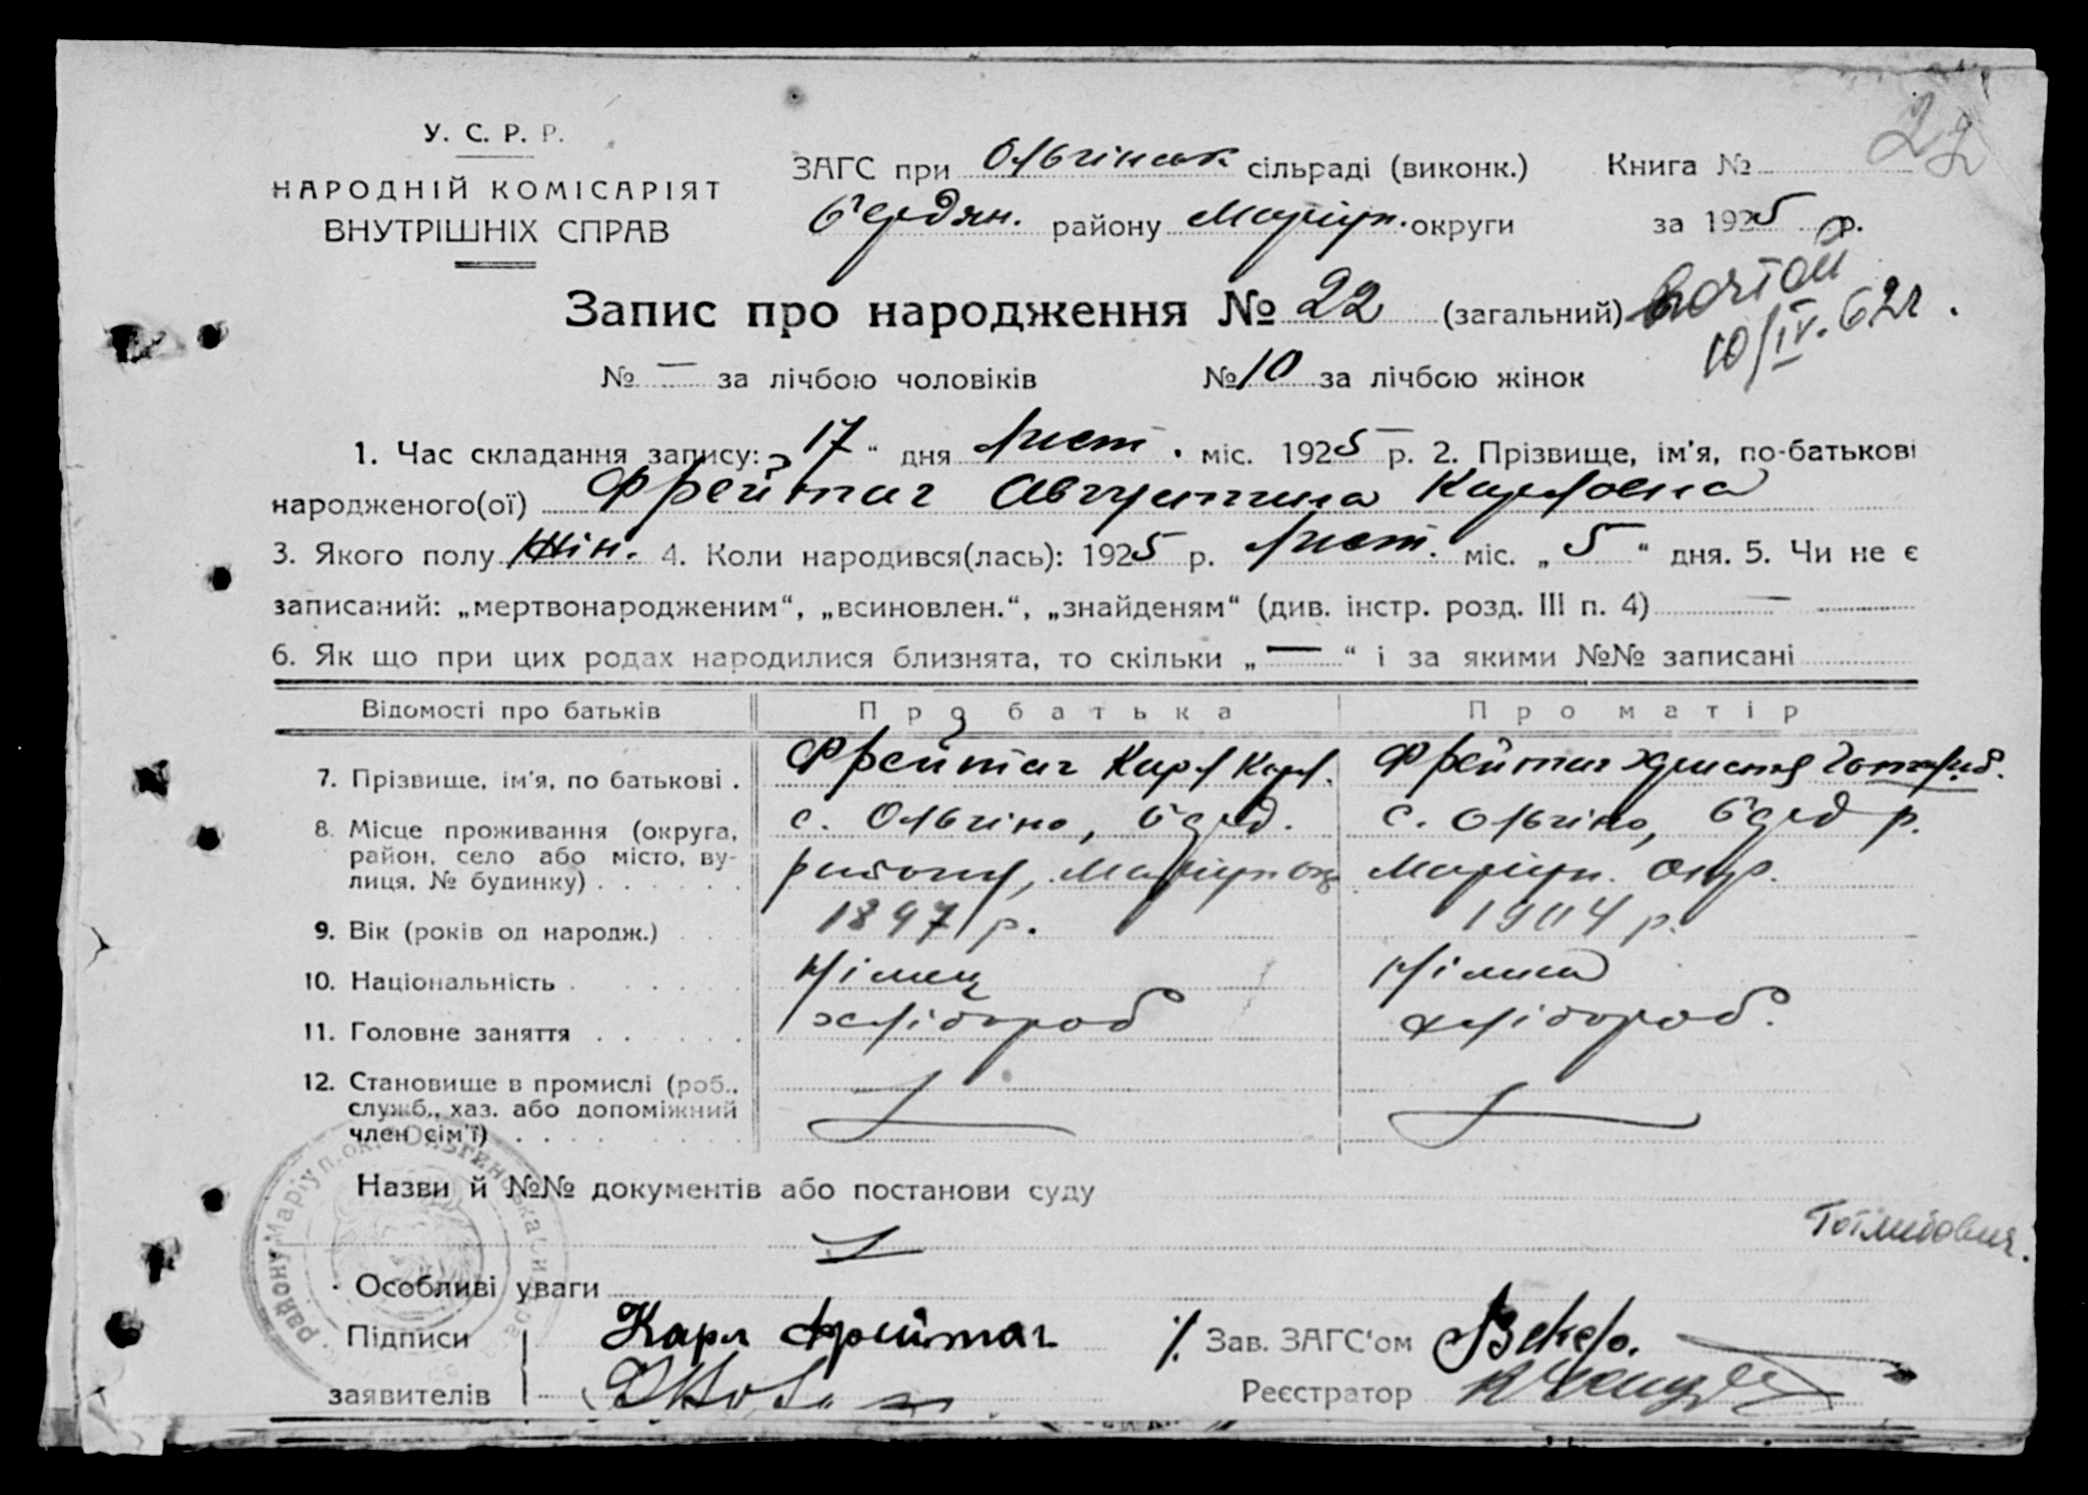 22
У. С. Р. Р.
НАРОДНІЙ КОМІСАРІЯТ
ВНУТРІШНІХ СПРАВ
ЗАГС при Ольгінськ сільраді (виконк.) Книга №
району Маріуп. округи за 1925 р.
Запис про народження № 22 (загальний)
10/IV. 62г.
№ — за лічбою чоловіків № 10 за лічбою жінок
1. Час складання запису: „17“ дня Лист. міс. 1925 р. 2. Прізвище, ім'я, по-батькові
народженого(ої) Фрейтаг Августина Карловна
3. Якого полу жін. 4. Коли народився(лась): 1925 р. Лист. міс. „5“ дня. 5. Чи не є
записаний: „мертвонародженим“, „всиновлен.“, „знайденям“ (див. інстр. розд. III п. 4) —
6. Як що при цих родах народилися близнята, то скільки „—“ і за якими №№ записані
Відомості про батьків Про батька Про матір
7. Прізвище, ім'я, по батькові . Фрейтаг Карл Карл. Фрейтаг Христя Готліб.
8. Місце проживання (округа, с. Ольгіно, с. Ольгіно, р.
район, село або місто, ву-
лиця, № будинку) . . . . . . району, Маріуп ок Маріуп. Окр.
9. Вік (років од народж.) 1897 р. 1904 р.
10. Національність . Німец Німка
11. Головне заняття . . . . . хлібороб хлібороб.
12. Становище в промислі (роб.,
служб., хаз. або допоміжний
член сім'ї) . . . .
Назви й №№ документів або постанови суду
Готлибовна.
Особливі уваги
Підписи Карл Фрейтаг Зав. ЗАГС'ом
заявителів Реєстратор
району Маріуп. ок. Ольгинська